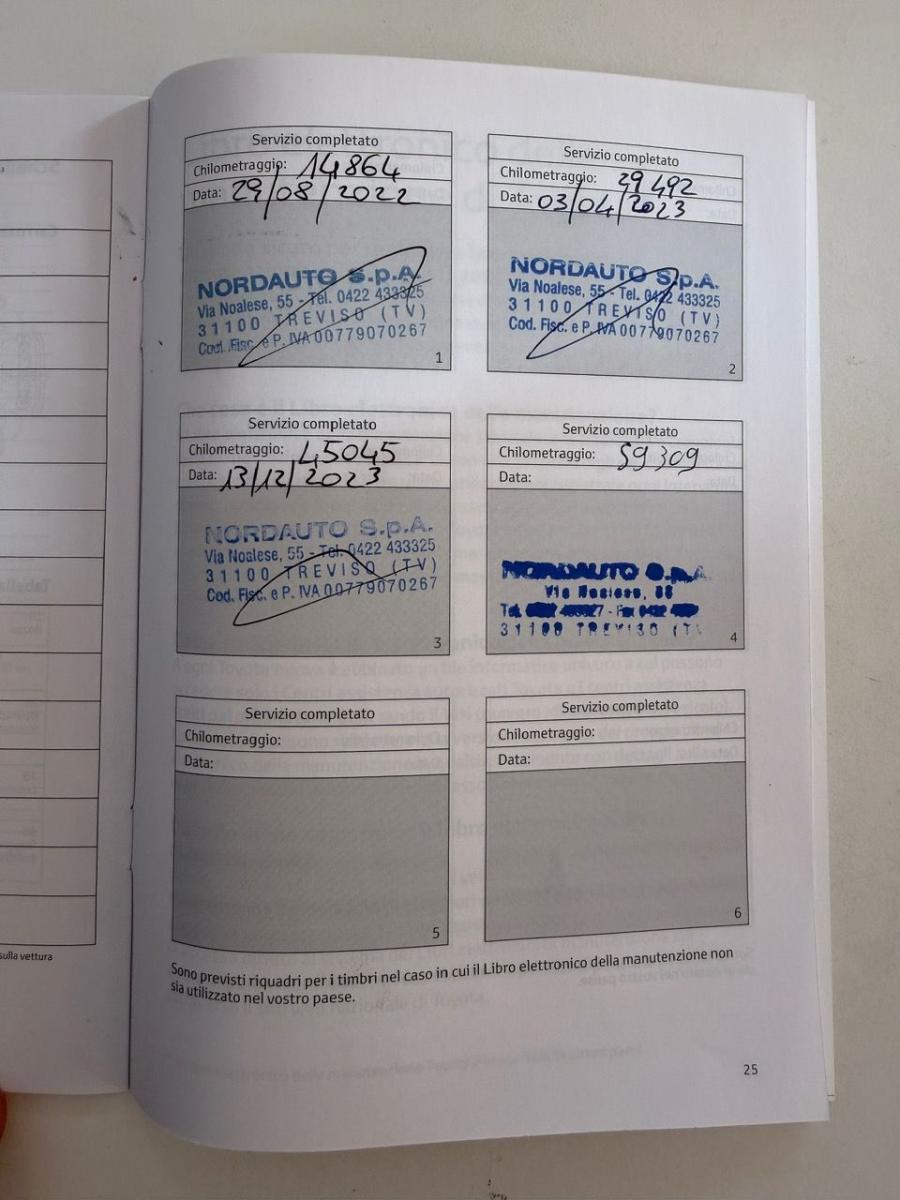 Servizio completato
Chilometraggio: 14864
Data: 29/08/2022
NORDAUTO S.p.A.
Via Noalese, 55 - Tel. 0422 433325
31100 TREVISO (TV)
Cod. Fisc. e P. IVA 00779070267
1
Servizio completato
Chilometraggio: 29492
Data: 03/04/2023
NORDAUTO S.p.A.
Via Noalese, 55 - Tel. 0422 433325
31100 TREVISO (TV)
Cod. Fisc. e P. IVA 00779070267
2
Servizio completato
Chilometraggio: 45045
Data: 13/12/2023
NORDAUTO S.p.A.
Via Noalese, 55 - Tel. 0422 433325
31100 TREVISO (TV)
Cod. Fisc. e P. IVA 00779070267
3
Servizio completato
Chilometraggio: 59309
Data:
NORDAUTO S.p.A.
Via Noalese, 55
31100 TREVISO (T
4
Servizio completato
Chilometraggio:
Data:
5
Servizio completato
Chilometraggio:
Data:
6
Sono previsti riquadri per i timbri nel caso in cui il Libro elettronico della manutenzione non
sia utilizzato nel vostro paese.
sulla vettura
25